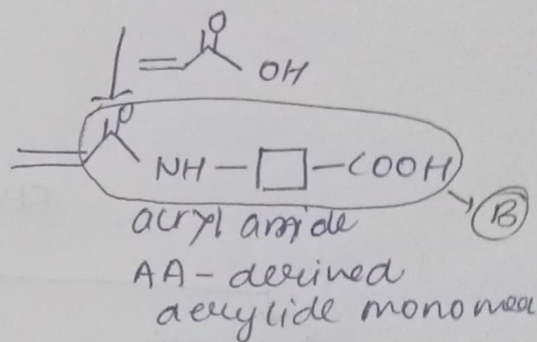 O
OH
O
NH-□-COOH
B
acryl amide
AA-derived
acrylide monomer